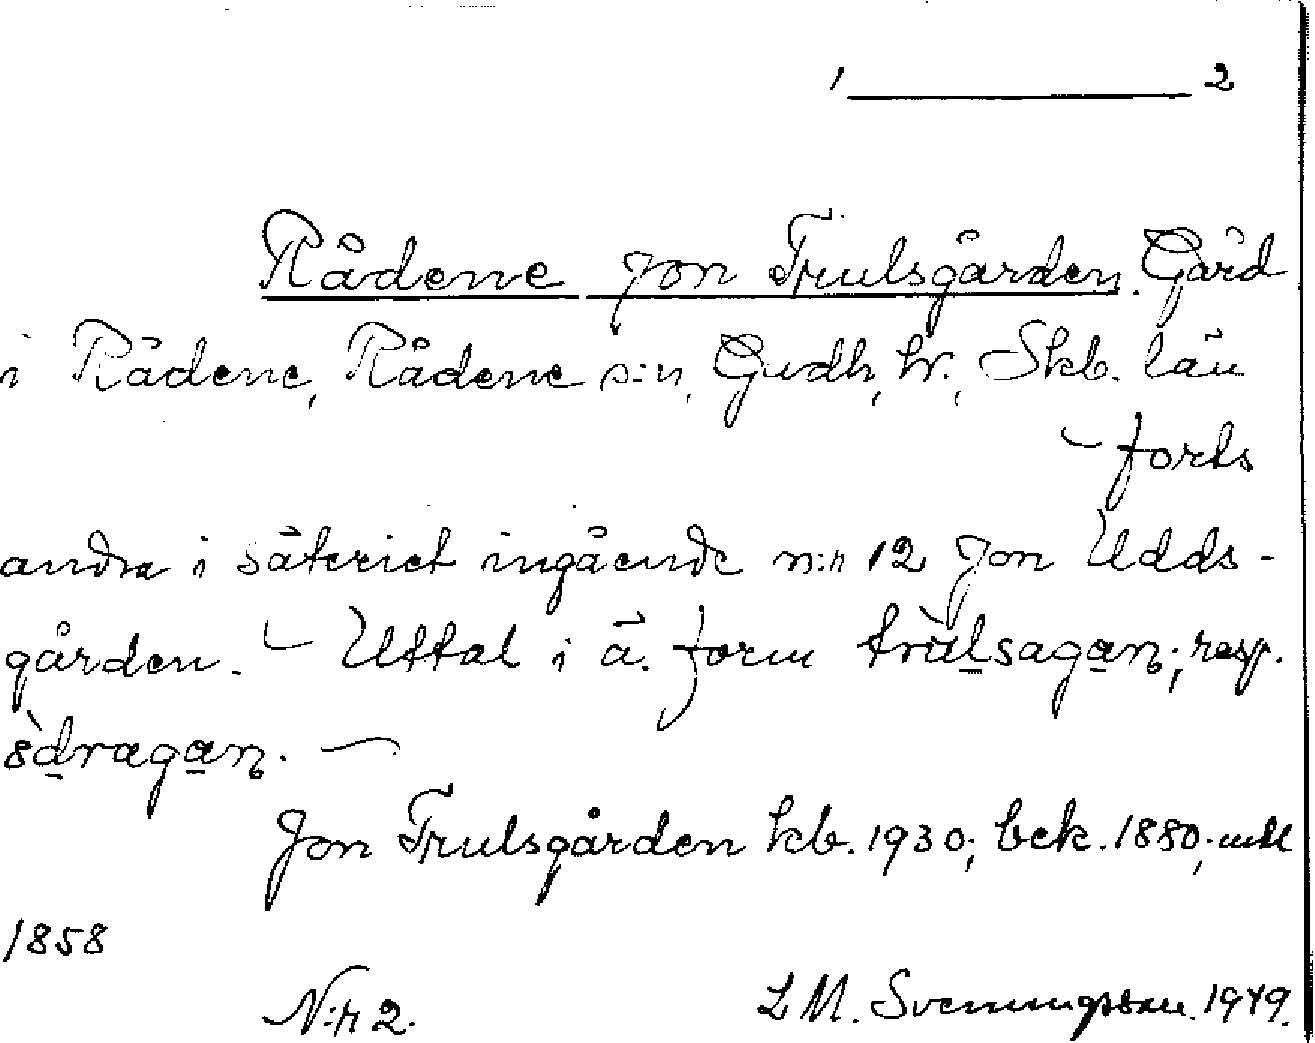 1 2
Rådene Jon Trulsgården. Gård
i Rådene, Rådene s:n, Gudh, hr., Skb. län
– forts
andra i säteriet ingående n:r 12 Jon Udds-
gården. – Uttal i ä. form trùlsagan; resp.
sòdragan. –
Jon Trulsgården kb. 1930; bek. 1880;
1858
N:r 2. L M. Svenungsson. 1949.